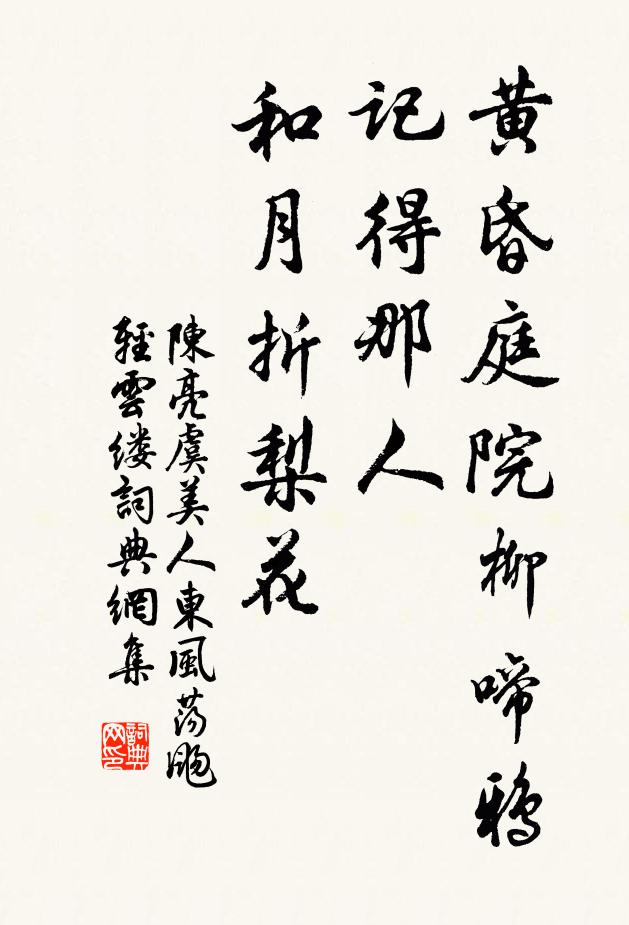 黄昏庭院柳啼鴉
記得那人
和月折梨花
陳亮虞美人東風蕩颺
輕雲缕詞典網集
詞典
网印